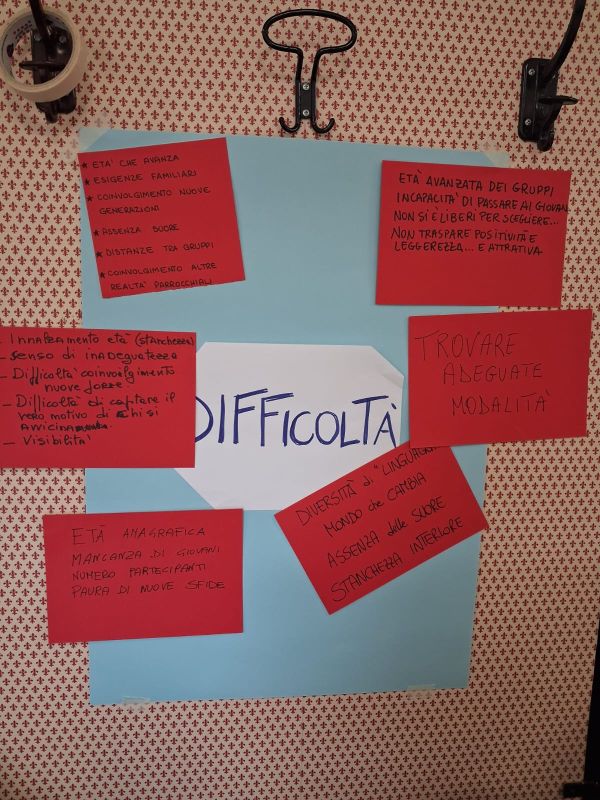 ★ ETA' CHE AVANZA
★ ESIGENZE FAMILIARI
★ COINVOLGIMENTO NUOVE
GENERAZIONI
★ ASSENZA SUORE
★ DISTANZE TRA GRUPPI
★ COINVOLGIMENTO ALTRE
REALTA' PARROCCHIALI
ETÀ AVANZATA DEI GRUPPI
INCAPACITA' DI PASSARE AI GIOVANI
NON SI È LIBERI PER SCEGLIERE...
NON TRASPARE POSITIVITÀ E
LEGGEREZZA... E ATTRATIVA
- Innalzamento età (stanchezza)
- Senso di inadeguatezza
- Difficoltà coinvolgimento
nuove forze.
- Difficoltà di captare il
vero motivo di chi si
avvicina
- Visibilità
DIFFICOLTÀ
TROVARE
ADEGUATE
MODALITA'
ETÀ ANAGRAFICA
MANCANZA DI GIOVANI
NUMERO PARTECIPANTI
PAURA DI NUOVE SFIDE
DIVERSITÀ di "LINGUAGGI
MONDO che CAMBIA
ASSENZA delle SUORE
STANCHEZZA INTERIORE